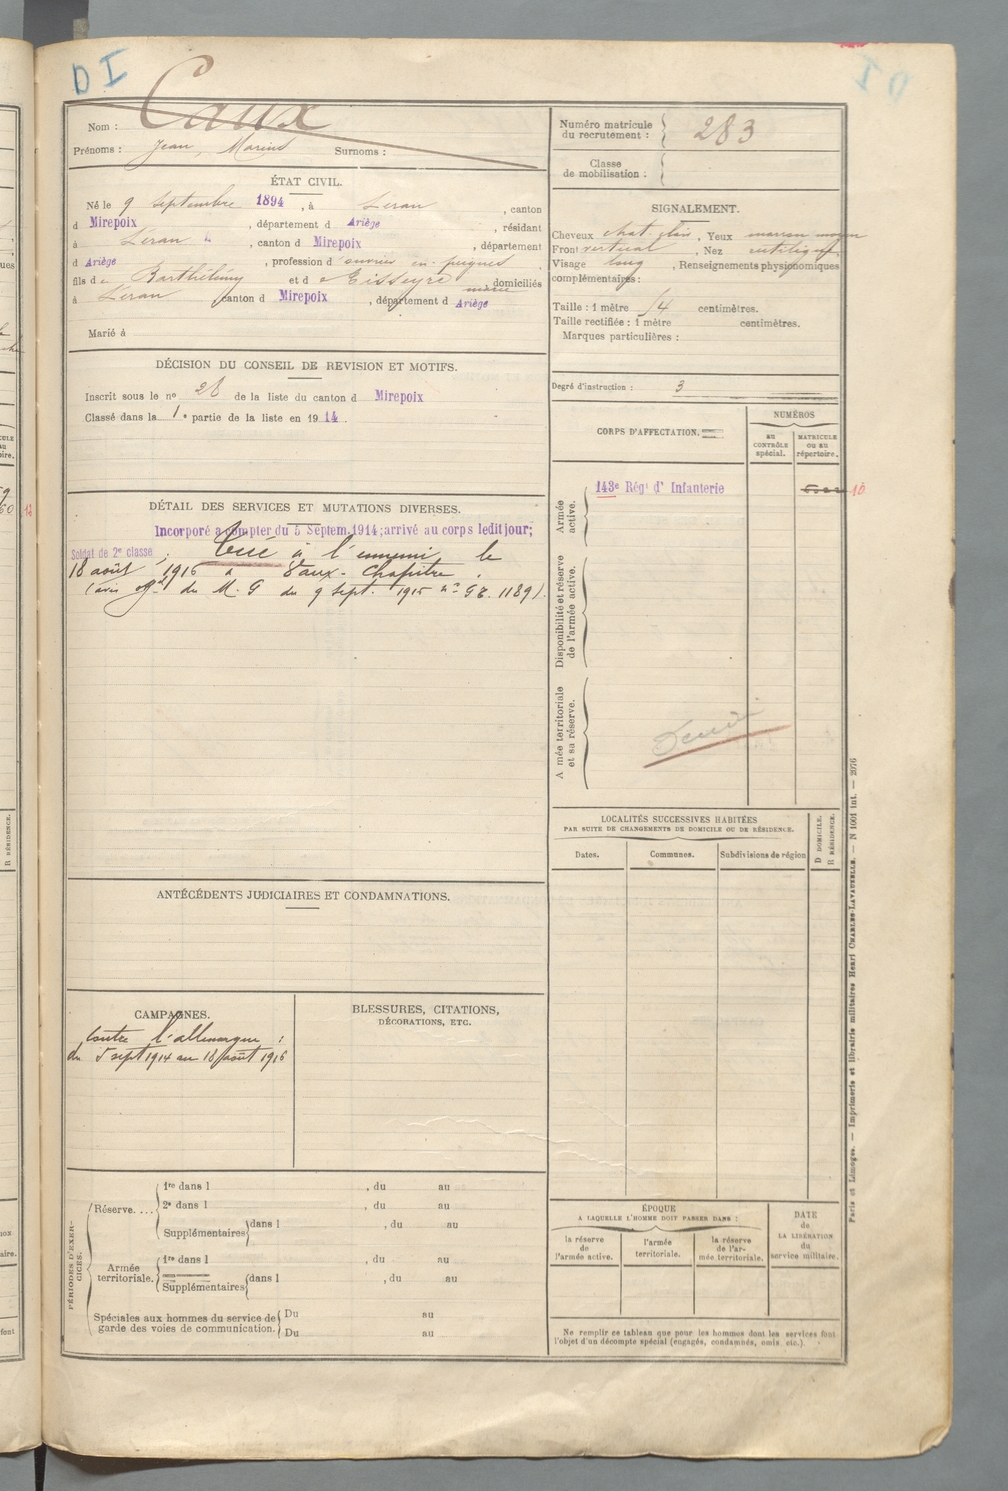 DI
Nom : Caux
Prénoms : Jean, Marius Surnoms :
ÉTAT CIVIL.
Né le 9 septembre 1894, à Léran, canton
d Mirepoix, département d Ariège, résidant
à Léran, canton d Mirepoix, département
d Ariège, profession d ouvrier en peignes,
fils de Barthélémy et de Eisseyre, domiciliés
à Léran, canton d Mirepoix, département d Ariège
Marié à
DÉCISION DU CONSEIL DE REVISION ET MOTIFS.
Inscrit sous le no 28 de la liste du canton d Mirepoix
Classé dans la 1e partie de la liste en 1914.
DÉTAIL DES SERVICES ET MUTATIONS DIVERSES.
Incorporé a compter du 5 Septem. 1914; arrivé au corps ledit jour;
Soldat de 2e classe ; Tué à l'ennemi le
18 août 1916 à Vaux-Chapitre.
(avis du M. G du 9 sept.
ANTÉCÉDENTS JUDICIAIRES ET CONDAMNATIONS.
CAMPAGNES.
Contre l'allemagne :
du 5 sept 1914 au 18 août 1916
BLESSURES, CITATIONS,
DÉCORATIONS, ETC.
PÉRIODES D'EXERCICES.
Réserve.... 1re dans l , du au
2e dans l , du au
Supplémentaires dans l , du au
Armée territoriale. 1re dans l , du au
Supplémentaires dans l , du au
Spéciales aux hommes du service de Du au
garde des voies de communication. Du au
Numéro matricule
du recrutement : 283
Classe
de mobilisation :
SIGNALEMENT.
Cheveux chat clair, Yeux marron moyen
Front vertical, Nez rectiligne,
Visage long, Renseignements physionomiques
complémentaires :
Taille : 1 mètre 54 centimètres.
Taille rectifiée : 1 mètre centimètres.
Marques particulières :
Degré d'instruction : 3
CORPS D'AFFECTATION.
NUMÉROS
au
CONTRÔLE
spécial.
MATRICULE
ou au
répertoire.
Armée
active.
143e Régt d'Infanterie
10
Disponibilité et réserve
de l'armée active.
A mée territoriale
et sa réserve.
LOCALITÉS SUCCESSIVES HABITÉES
PAR SUITE DE CHANGEMENTS DE DOMICILE OU DE RÉSIDENCE.
Dates. Communes. Subdivisions de région
D DOMICILE.
R RÉSIDENCE.
ÉPOQUE
A LAQUELLE L'HOMME DOIT PASSER DANS :
la réserve
de
l'armée active.
l'armée
territoriale.
la réserve
de l'ar-
mée territoriale.
DATE
de
LA LIBÉRATION
du
service militaire.
Ne remplir ce tableau que pour les hommes dont les services font
l'objet d'un décompte spécial (engagés, condamnés, omis etc.).
Paris et Limoges. — Imprimerie et librairie militaires Henri CHARLES-LAVAUZELLE. — N 1001 int. — 2076